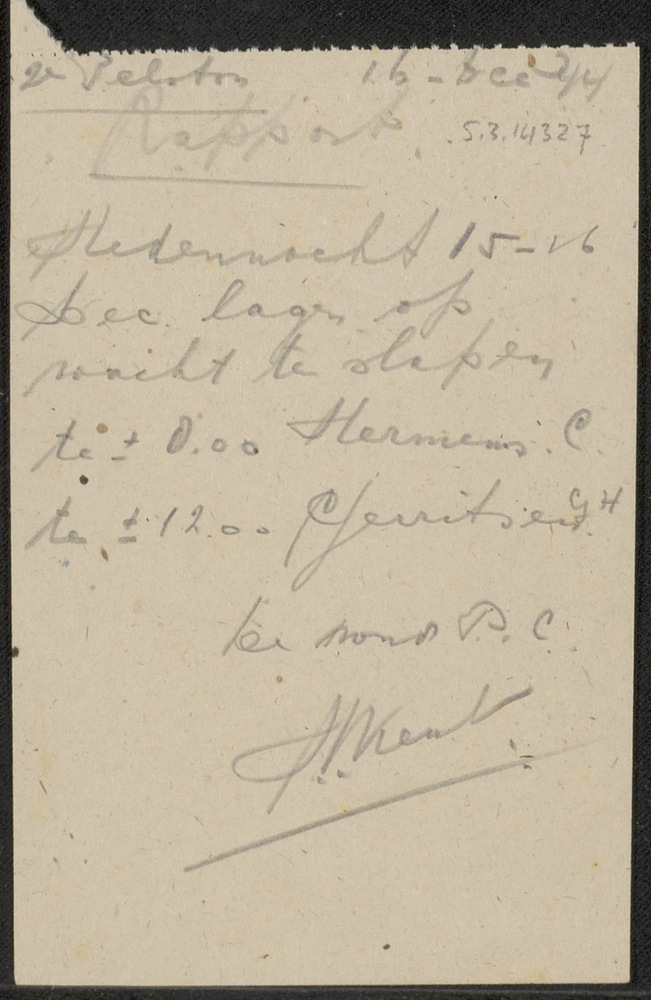 2e Peloton 16-Dec 44
Rapport.
5.3.14327
Hedennacht 15-16
Dec. lagen op
wacht te slapen
te ± 0.00 Hermens. C.
te ± 12.00 Gerritsen G H
De P. C.